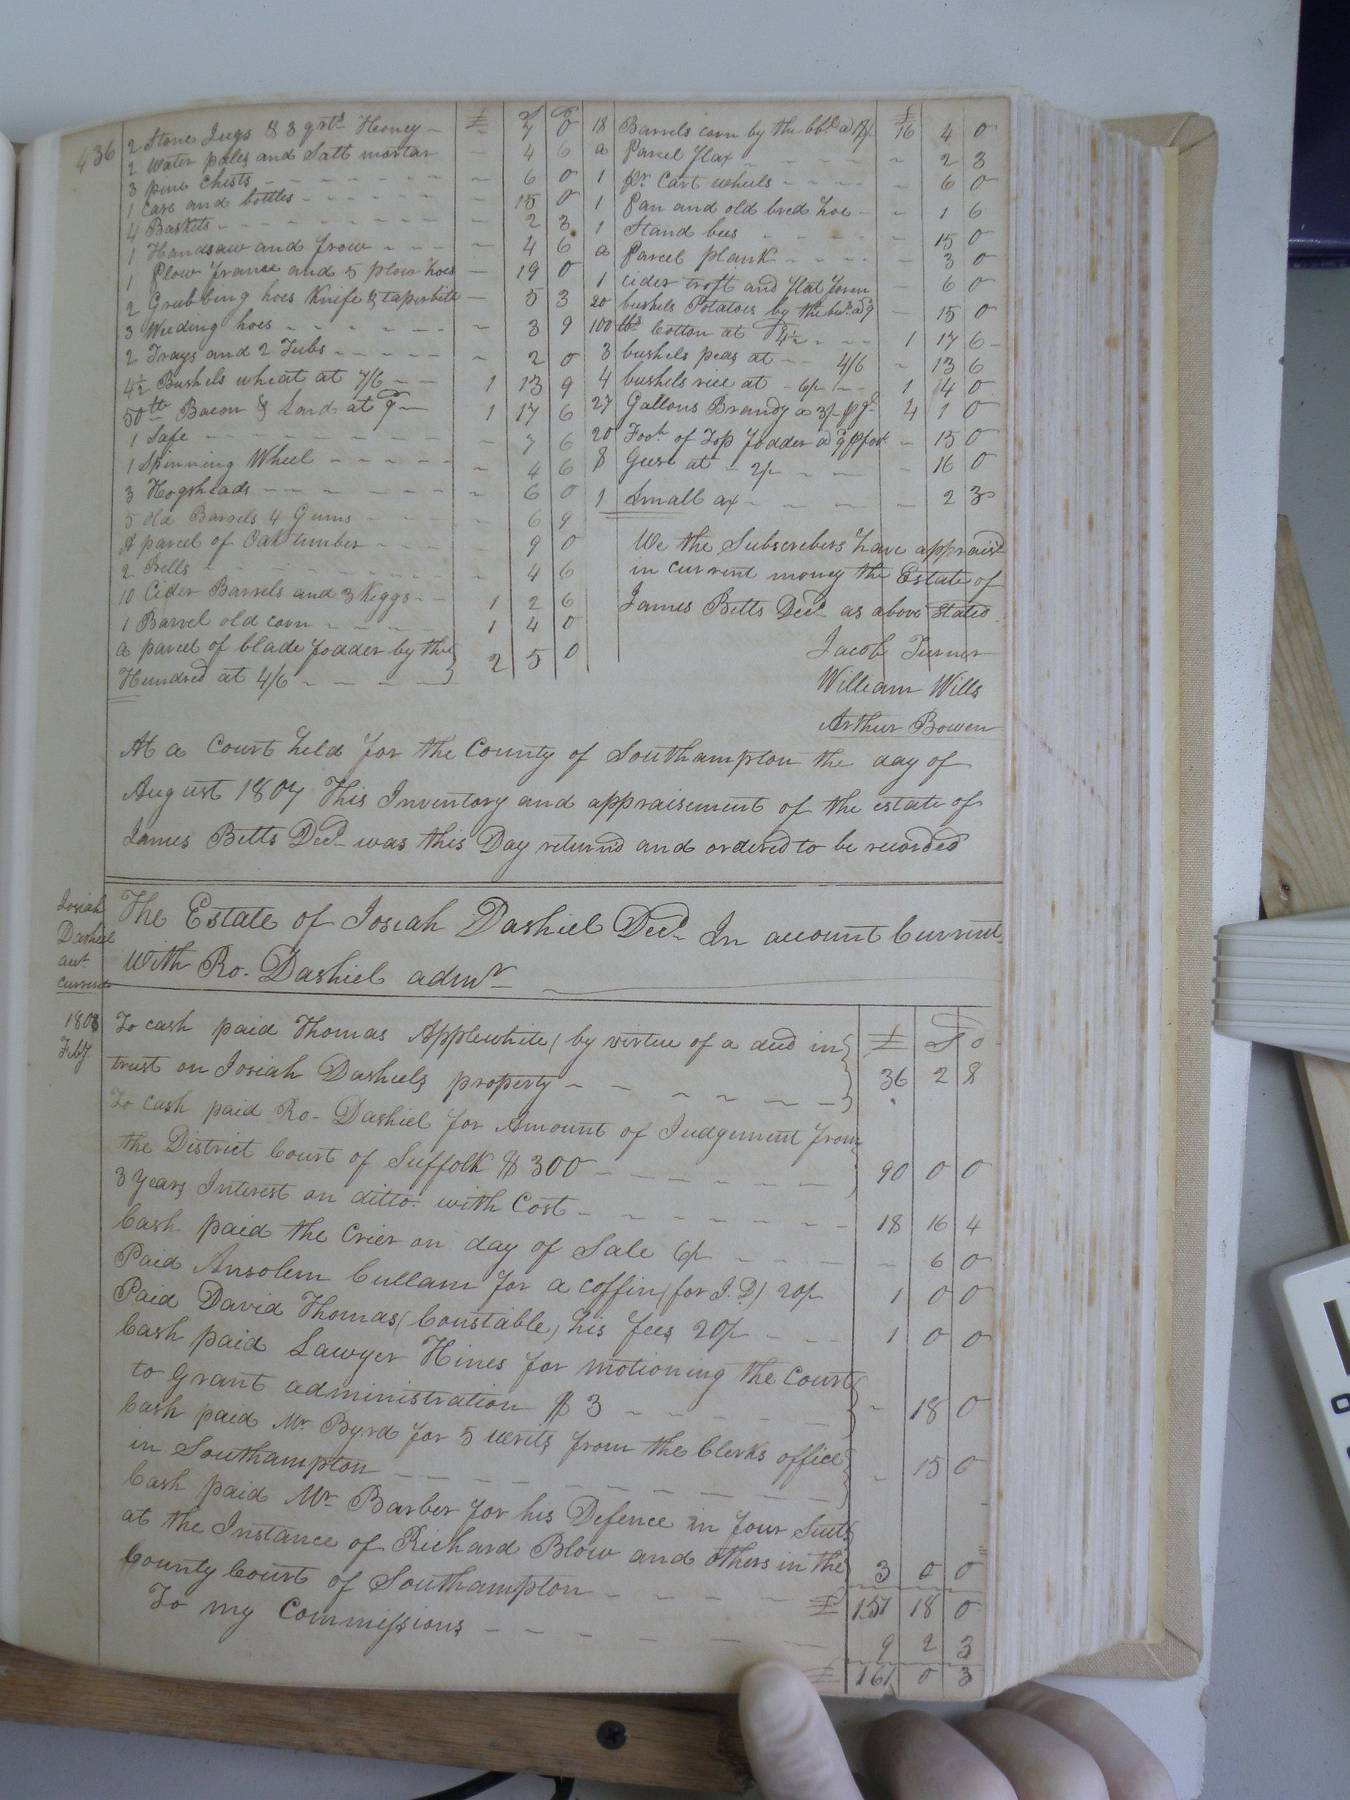 436
£ S D
2 Stone Jugs & 3 qrts Honey - 7 0
2 Water pales and Salt mortar - 4 6
3 pine Chests - 6 0
1 Case and bottles - 15 0
4 Baskets - 2 3
1 Handsaw and frow - 4 6
1 Plow frame and 5 plow hoes - 19 0
2 Grubbing hoes Knife & taperbitt - 5 3
3 Weeding hoes - 3 9
2 Trays and 2 Tubs - 2 0
4½ Bushels wheat at 7/6 - 1 13 9
50 tt Bacon & Lard at 9 - 1 17 6
1 Safe - 7 6
1 Spinning Wheel - 4 6
3 Hogsheads - 6 0
5 old Barrels 4 Gums - 6 9
A parcel of Oak timber - 9 0
2 - 4 6
10 Cider Barrels and 3 Keggs - 1 2 6
1 Barrel old corn - 1 4 0
a parcel of blade fodder by the
Hundred at 4/6 - 2 5 0
£
18 Barrels corn by the bbl 16 4 0
a Parcel flax - 2 3
1 pr Cart wheels - 6 0
1 Pan and old bred hoe - 1 6
1 Stand bees - 15 0
a Parcel plank - 3 0
1 cider troft and flat form - 6 0
20 bushels Potatoes by the bul. a 9 - 15 0
100 tts Cotton at 4½ - 1 17 6
3 bushels peas at 4/6 - 13 6
4 bushels rice at 6/ - 1 4 0
27 Gallons Brandy a 3/ p gl 4 1 0
20 Foot of Top fodder a 9 p foot - 15 0
8 Geese at 2/ - 16 0
1 Small ax - 2 3
We the Subscribers have appraisd
in current money the Estate of
James Betts Decd as above stated.
Jacob Turner
William Wills
Arthur Bowen
At a Court held for the County of Southampton the day of
August 1807 This Inventory and appraisement of the estate of
James Betts Decd was this Day returnd and ordered to be recorded
Josiah
Dashiel
acct
current
The Estate of Josiah Dashiel Decd In account Current
with Ro. Dashiel admr
1803
Feby
£ S D
To cash paid Thomas Applewhite (by virtue of a deed in
trust on Josiah Dashiels property - 36 2 8
To cash paid Ro- Dashiel for Amount of Judgement from
the District Court of Suffolk $300 - 90 0 0
3 years Interest on ditto with Cost - 18 16 4
Cash paid the Crier on day of Sale 6/ - 6 0
Paid Ansolem Cullam for a coffin (for J.D) 20/ 1 0 0
Paid David Thomas (Constable) his fees 20/ - 1 0 0
Cash paid Lawyer Hines for motioning the Court
to grant administration $3 - 18 0
Cash paid Mr Byrd for 5 writs from the Clerks office
in Southampton - 15 0
Cash paid Mr Barber for his Defence in four Suits
at the Instance of Richard Blow and others in the
County Court of Southampton - 3 0 0
£ 151 18 0
To my Commissions - 9 2 3
£ 161 0 3